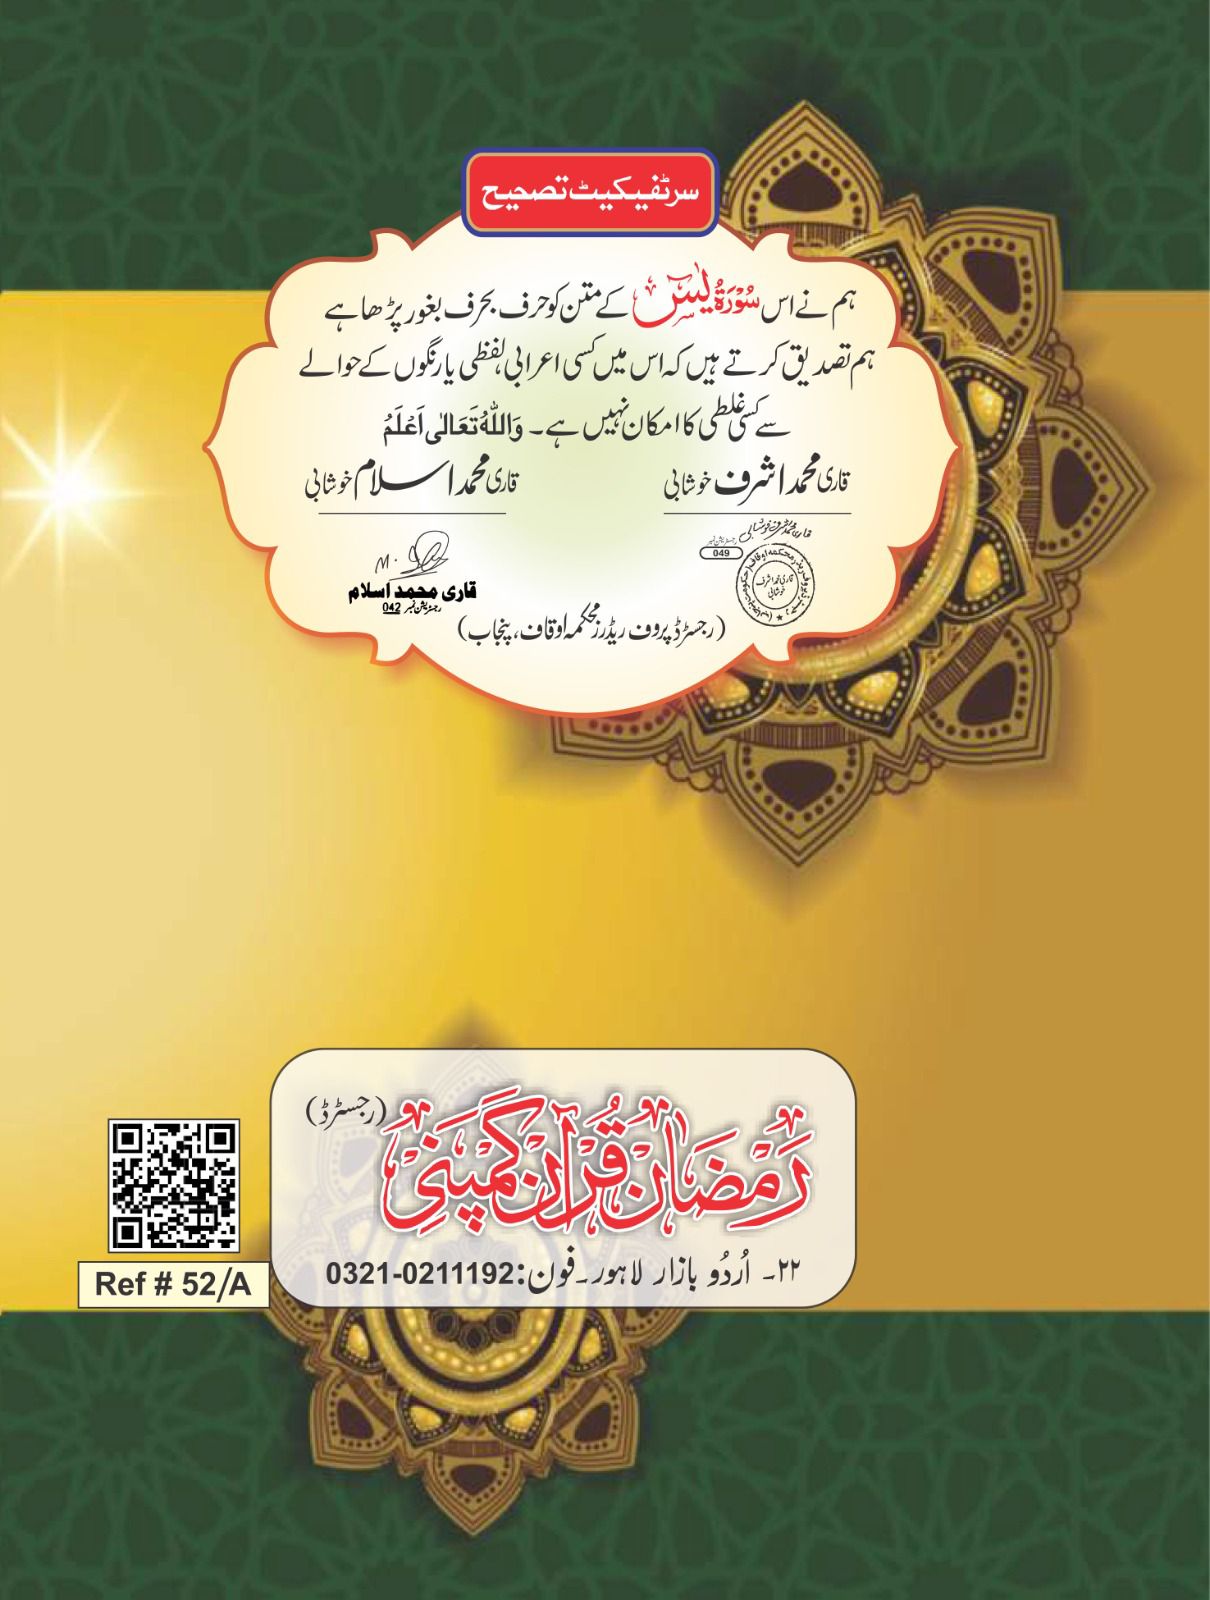 سرٹیفیکیٹ تصحیح
ہم نے اس سُوْرَۃُ یٰسٓ کے متن کو حرف بحرف بغور پڑھا ہے
ہم تصدیق کرتے ہیں کہ اس میں کسی اعرابی، لفظی یا رنگوں کے حوالے
سے کسی غلطی کا امکان نہیں ہے۔ وَاللّٰہُ تَعَالٰی اَعْلَمُ
قاری محمد اشرف خوشابی
قاری محمد اسلام خوشابی
قاری محمد اشرف خوشابی
رجسٹریشن نمبر
049
قاری محمد اشرف
خوشابی
قاری محمد اسلام
رجسٹریشن نمبر 042
(رجسٹرڈ پروف ریڈرز محکمہ اوقاف، پنجاب)
رَمضَان قُرآن کمپَنی (رجسٹرڈ)
۲۲۔ اُردُو بازار لاہور۔ فون: 0321-0211192
Ref # 52/A